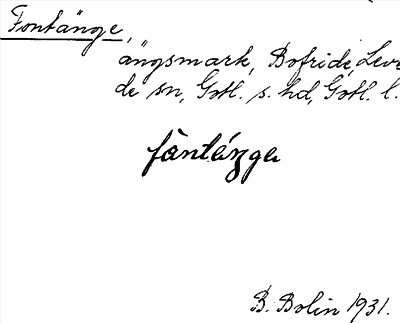 Fontänge,
ängsmark, Bofride, Leve
de sn, Gotl. s. hd, Gotl. l.
fàntáŋgα
B. Bolin 1931.